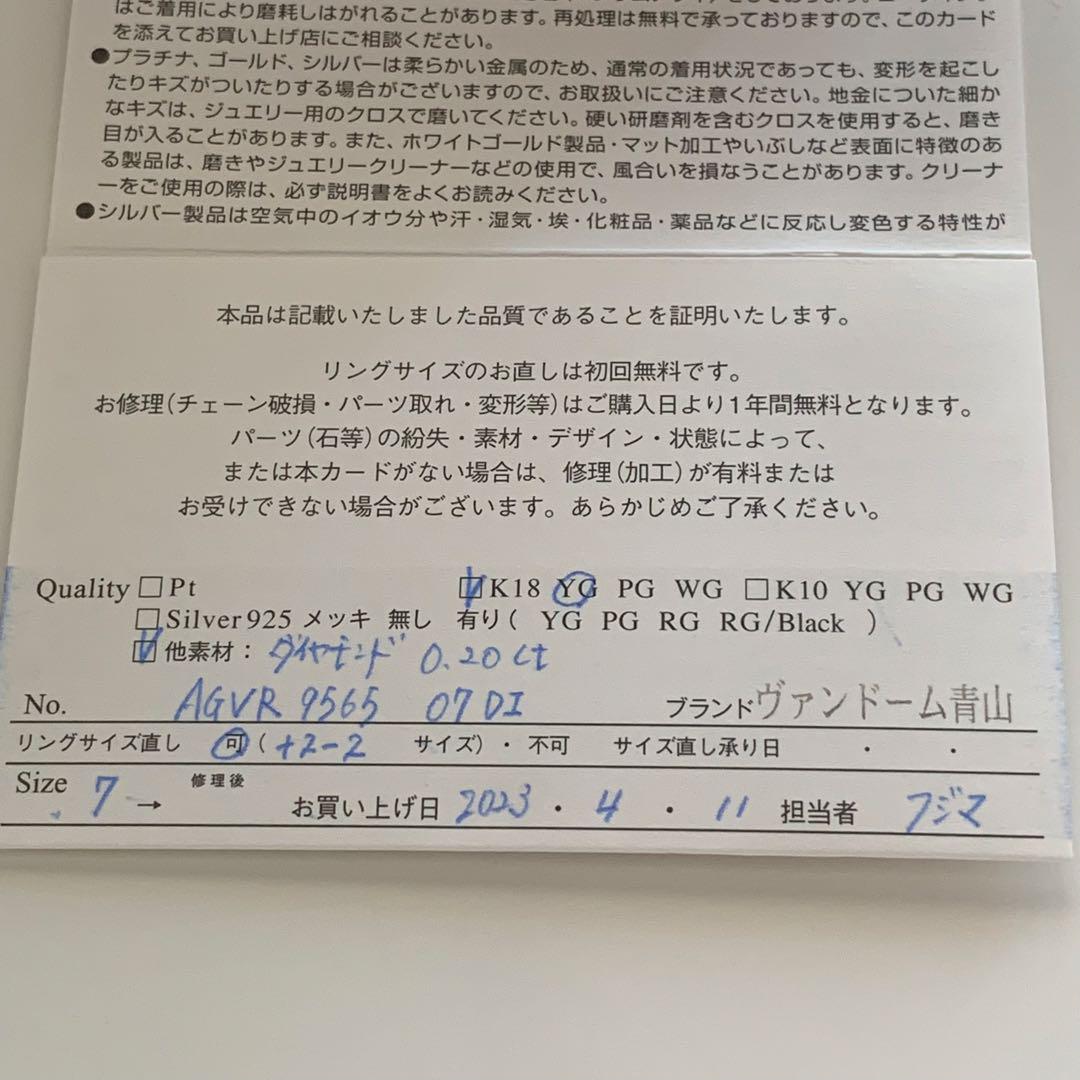 はご着用により磨耗しはがれることがあります。再処理は無料で承っておりますので、このカード
を添えてお買い上げ店にご相談ください。
●プラチナ、ゴールド、シルバーは柔らかい金属のため、通常の着用状況であっても、変形を起こし
たりキズがついたりする場合がございますので、お取扱いにご注意ください。地金についた細か
なキズは、ジュエリー用のクロスで磨いてください。硬い研磨剤を含むクロスを使用すると、磨き
目が入ることがあります。また、ホワイトゴールド製品・マット加工やいぶしなど表面に特徴のあ
る製品は、磨きやジュエリークリーナーなどの使用で、風合いを損なうことがあります。クリーナ
ーをご使用の際は、必ず説明書をよくお読みください。
●シルバー製品は空気中のイオウ分や汗・湿気・埃・化粧品・薬品などに反応し変色する特性が
本品は記載いたしました品質であることを証明いたします。
リングサイズのお直しは初回無料です。
お修理(チェーン破損・パーツ取れ・変形等)はご購入日より1年間無料となります。
パーツ(石等)の紛失・素材・デザイン・状態によって、
または本カードがない場合は、修理(加工)が有料または
お受けできない場合がございます。あらかじめご了承ください。
Quality □Pt ☑K18 YG PG WG □K10 YG PG WG
□Silver925 メッキ 無し 有り( YG PG RG RG/Black )
☑他素材: ダイヤモンド 0.20ct
No. AGVR 9565 07 DI ブランド ヴァンドーム青山
リングサイズ直し 可 (+2-2 サイズ)・不可 サイズ直し承り日 ・ ・
Size 7 → 修理後 お買い上げ日 2023・4・11 担当者 フジマ